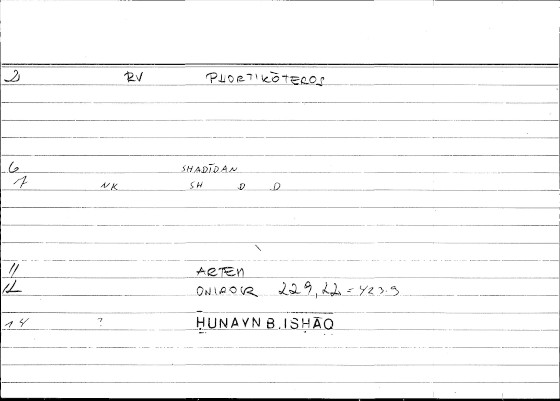 2 RV PHORTIKŌTEROS
6 SHADĪDAN
7 NK SH D D
11 ARTEM
12 ONIROCR 229,22 = 423.9
14 ? ḤUNAYN B. ISḤĀQ